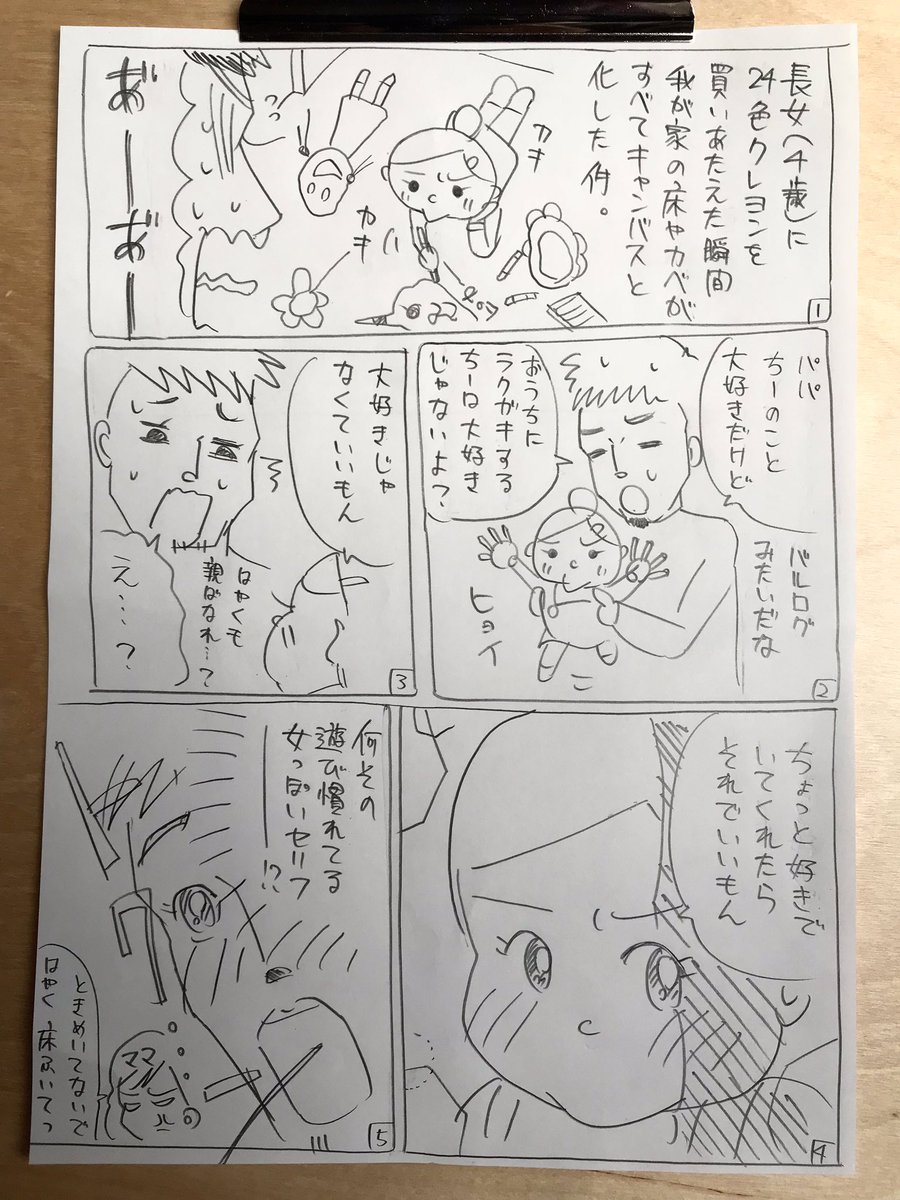 長女(4歳)に
24色クレヨンを
買いあたえた瞬間
我が家の床やカベが
すべてキャンバスと
化した件。
カキ
カキ
あ゛ーーお゛ーー
1
パパ
ちーのこと
大好きだけど
おうちに
ラクガキする
ちーは大好き
じゃないよ?
バルログ
みたいだな
ヒョイ
2
大好きじゃ
なくていいもん
はやくも
親ばなれ…?
え…?
3
ちょっと好きで
いてくれたら
それでいいもん
4
何その
遊び慣れてる
女っぽいセリフ
!?
ママ
ときめいてないで
はやく床ふいてっ
5